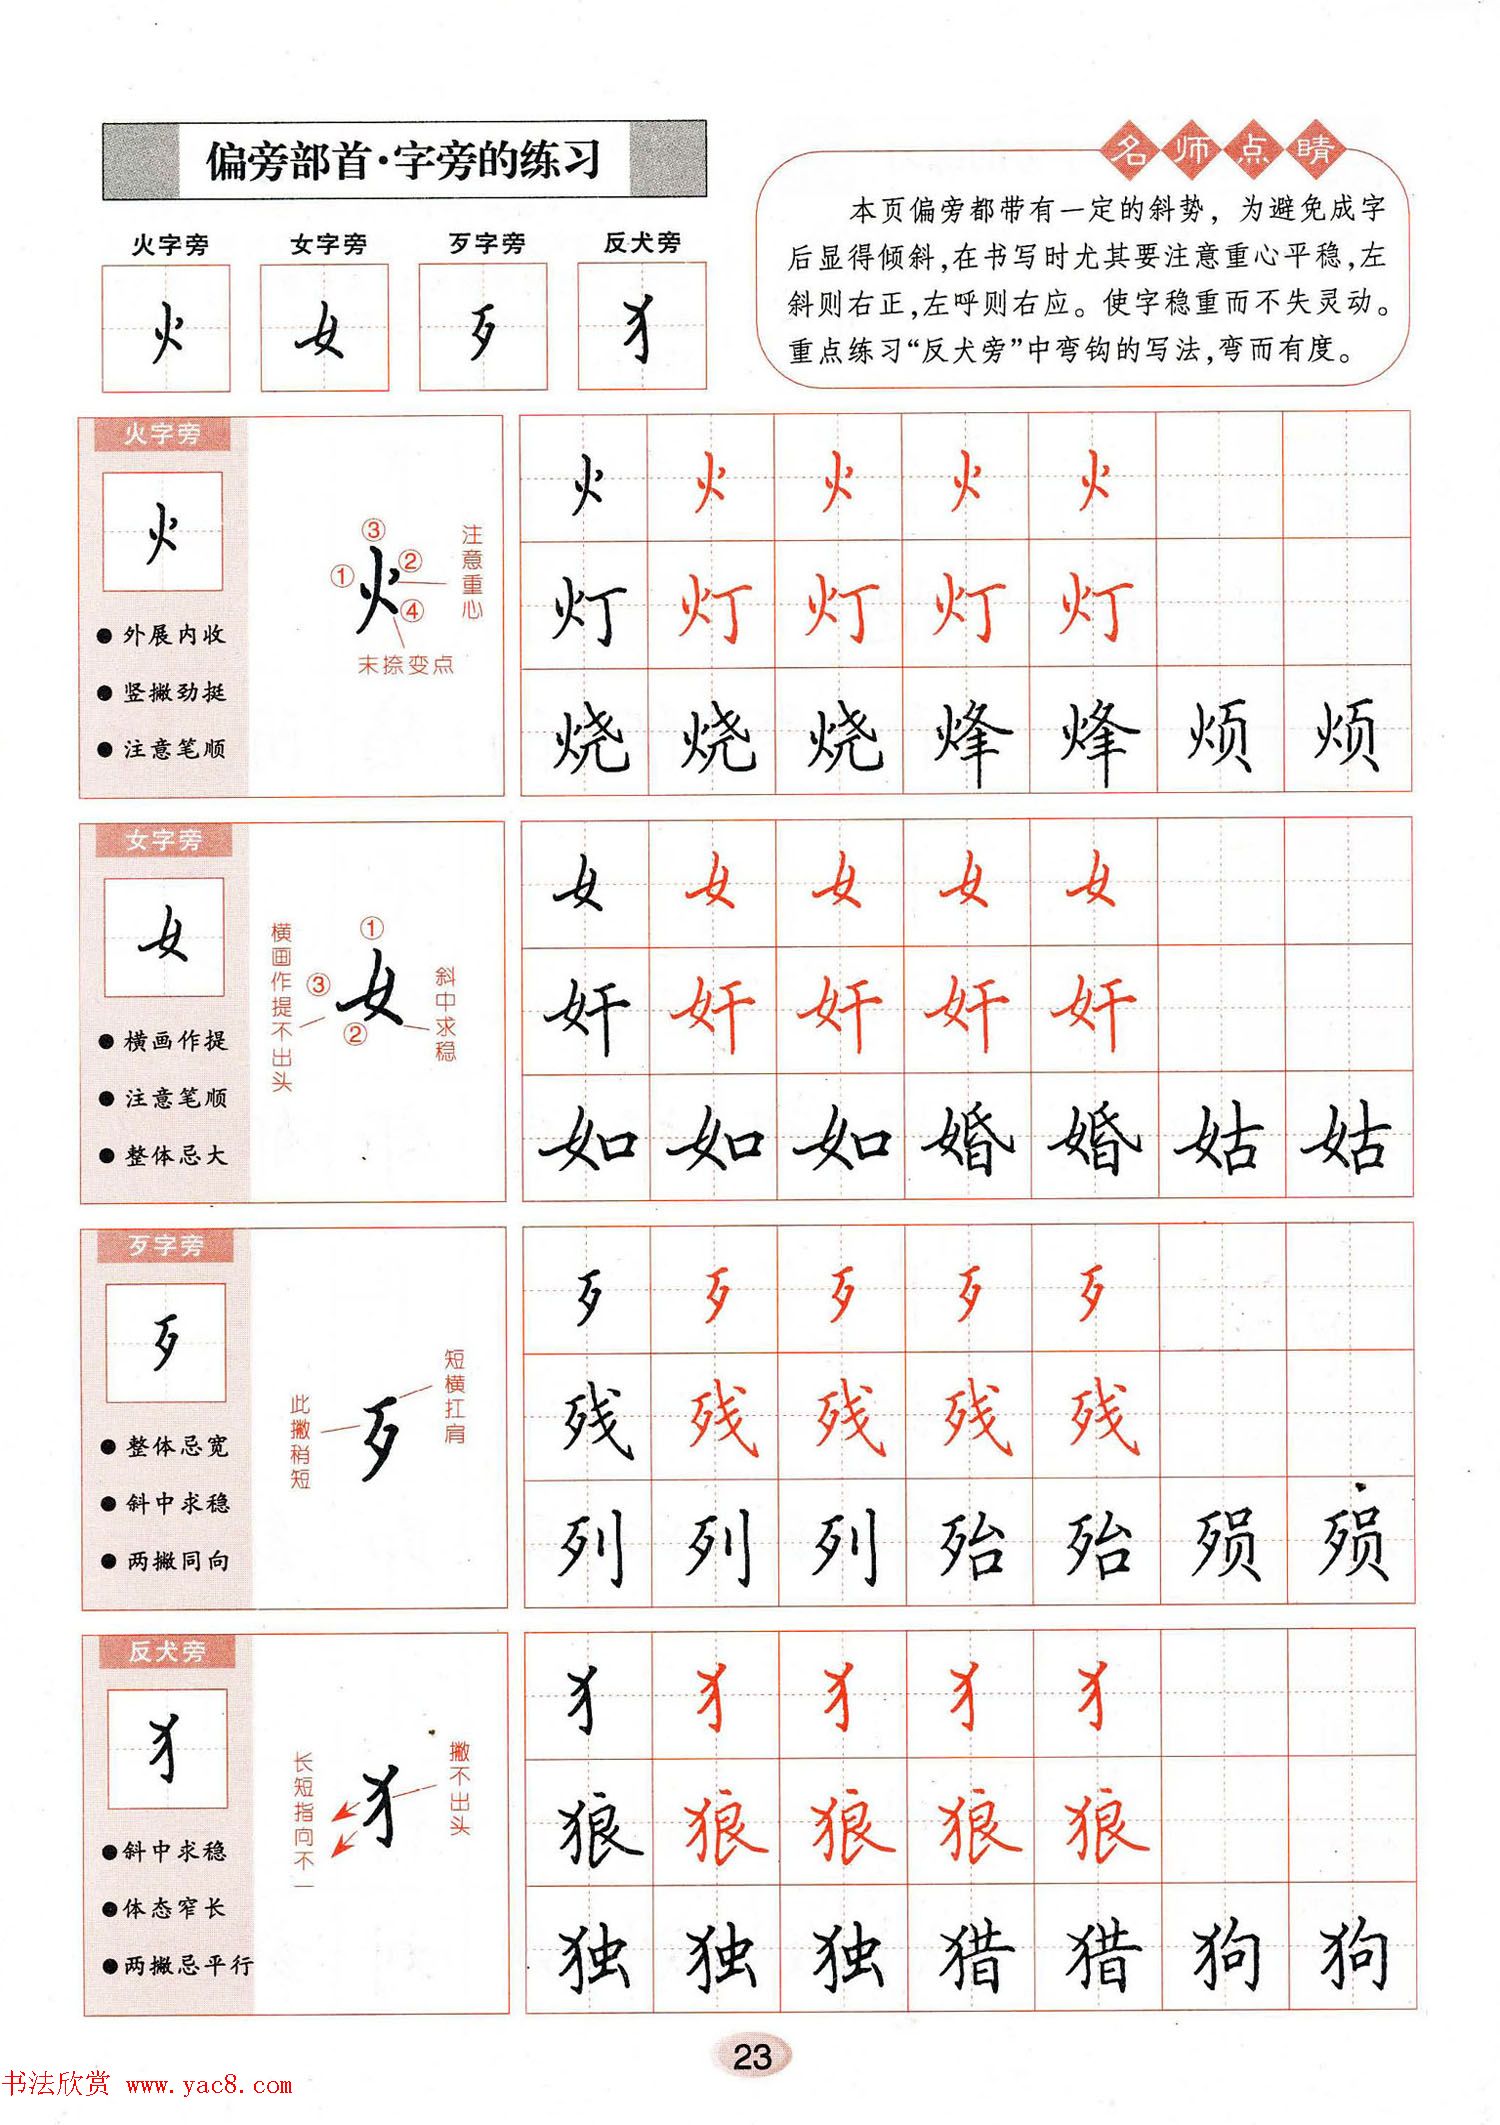 偏旁部首·字旁的练习
名师点睛
本页偏旁都带有一定的斜势，为避免成字
后显得倾斜，在书写时尤其要注意重心平稳，左
斜则右正，左呼则右应。使字稳重而不失灵动。
重点练习“反犬旁”中弯钩的写法，弯而有度。
火字旁 女字旁 歹字旁 反犬旁
火 女 歹 犭
火字旁
火
●外展内收
●竖撇劲挺
●注意笔顺
① ② ③ ④
火
注意重心
末捺变点
火 火 火 火 火
灯 灯 灯 灯 灯
烧 烧 烧 烽 烽 烦 烦
女字旁
女
●横画作提
●注意笔顺
●整体忌大
① ② ③
女
横画作提不出头
斜中求稳
女 女 女 女 女
奸 奸 奸 奸 奸
如 如 如 婚 婚 姑 姑
歹字旁
歹
●整体忌宽
●斜中求稳
●两撇同向
歹
此撇稍短
短横扛肩
歹 歹 歹 歹 歹
残 残 残 残 残
列 列 列 殆 殆 殒 殒
反犬旁
犭
●斜中求稳
●体态窄长
●两撇忌平行
犭
长短指向不一
撇不出头
犭 犭 犭 犭 犭
狼 狼 狼 狼 狼
独 独 独 猎 猎 狗 狗
23
书法欣赏 www.yac8.com